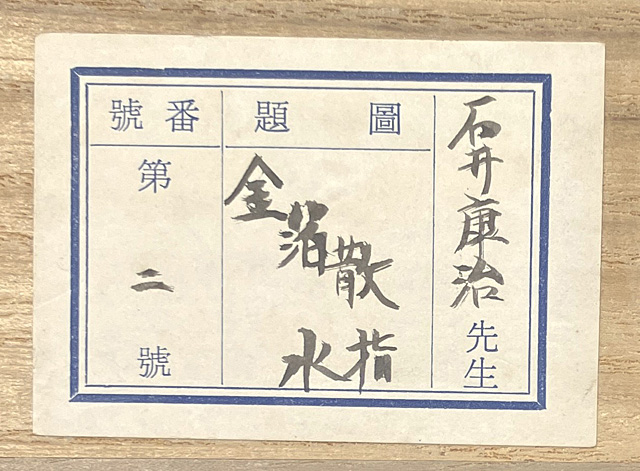 石井康治先生
圖題
金箔散
水指
番號
第二號